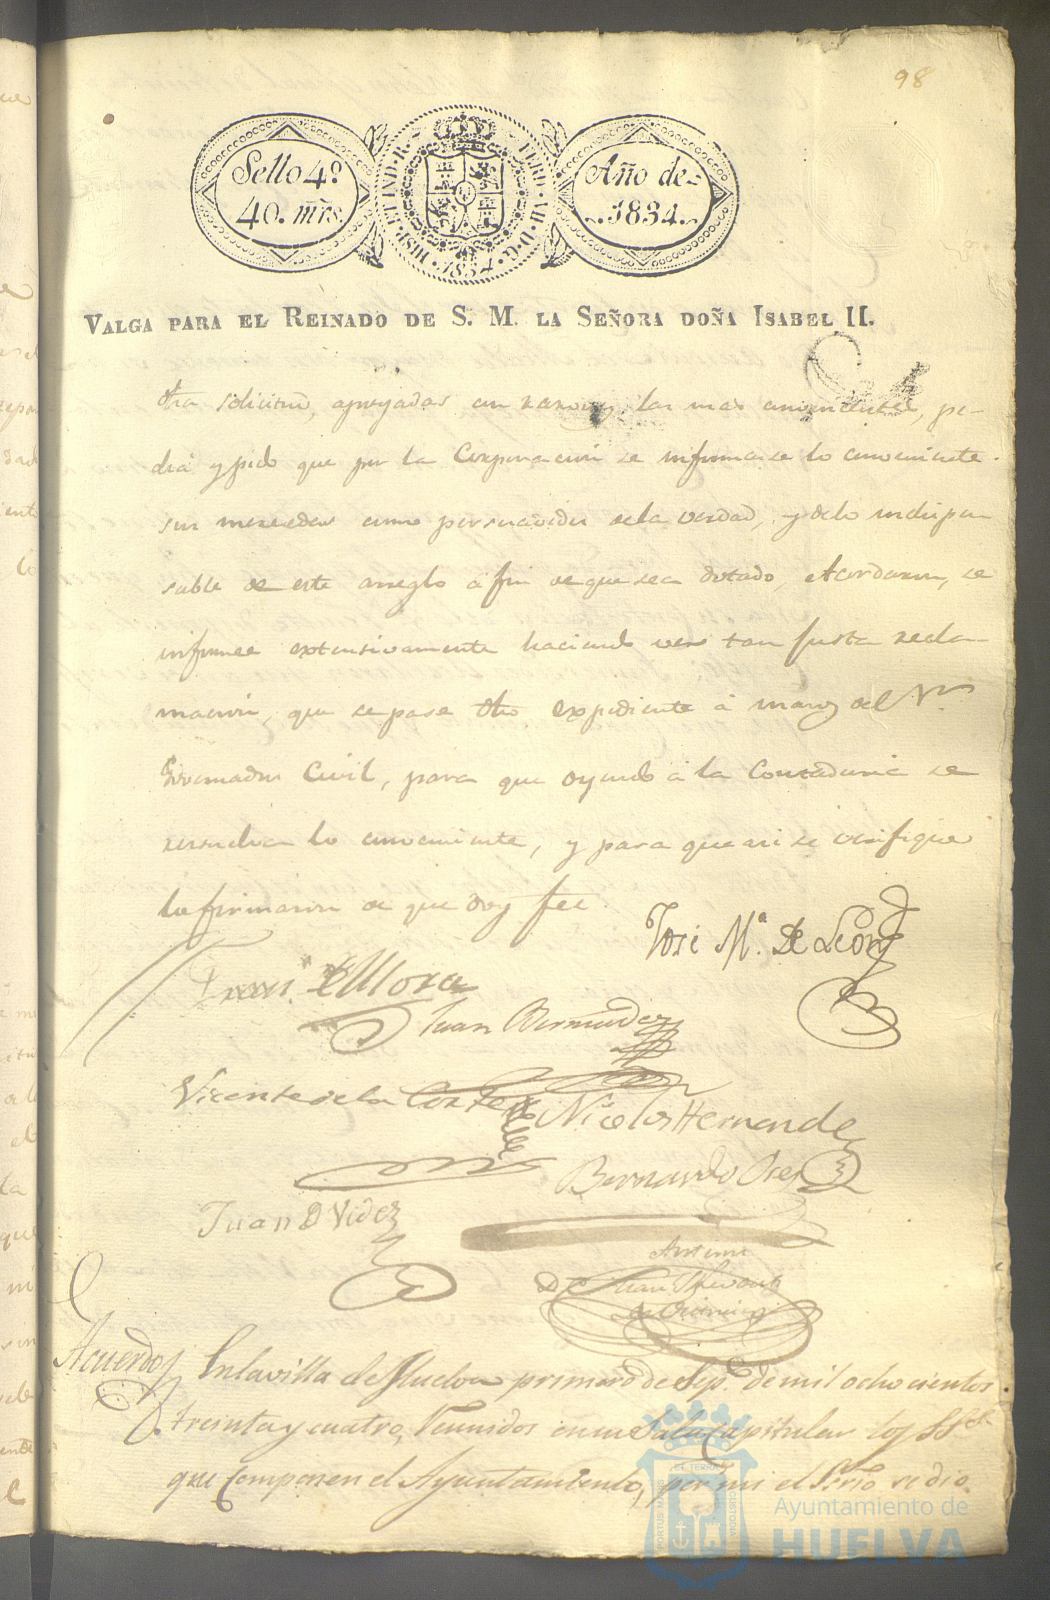 98
Sello 4º
40. mrs.
HISP. ET IND. R. FERD. VII. D. G. 1834
Año de
1834.
VALGA PARA EL REINADO DE S. M. LA SEÑORA DOÑA ISABEL II.
dha solicitud, apoyadas en razones las mas convincentes, pe-
día y pido que por la Corporacion se informase lo conveniente.
sus mercedes como persuadidos de la verdad, y de lo indispen
sable de este arreglo á fin de que sea dotado, Acordaron, se
informe extensivamente haciendo ver tan justa recla-
macion, que se pase dho expediente á manos del Sr.
Governador Civil, para que oyendo á la Contaduria se
resuelva lo conveniente, y para que asi se verifique
lo firmaron de que doy fee.
José Mª. De Leon
de Mora
Juan Bermudez
Vicente de la Corte
Nicolas Hernandez
Bernardo
Juan D Videz
Ante mi
Juan
Acuerdo
En la villa de Huelva primero de Sepe. de mil ochocientos
treinta y cuatro, Reunidos en su Sala Capitular los SSes.
que componen el Ayuntamiento, por mi el Srio se dio
PORTUS MARIS ET TERRAE CUSTODIA
Ayuntamiento de
HUELVA